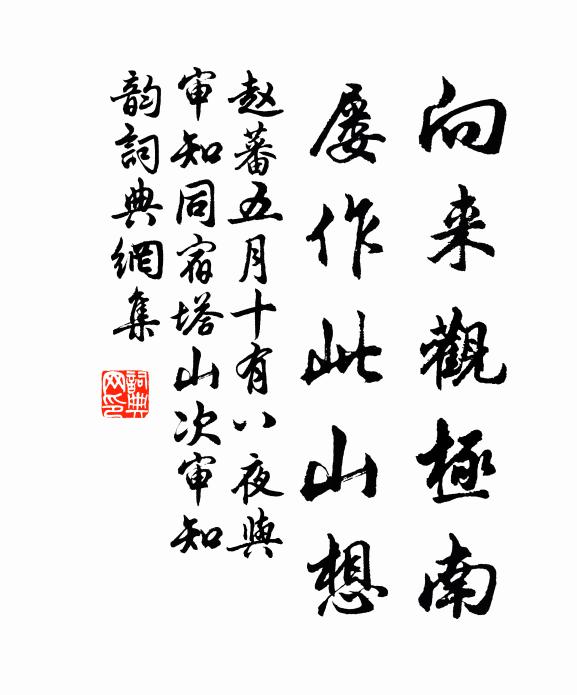 向来觀極南
屡作此山想
赵蕃五月十有八夜與
审知同宿塔山次审知
韵詞典網集
詞典
网印